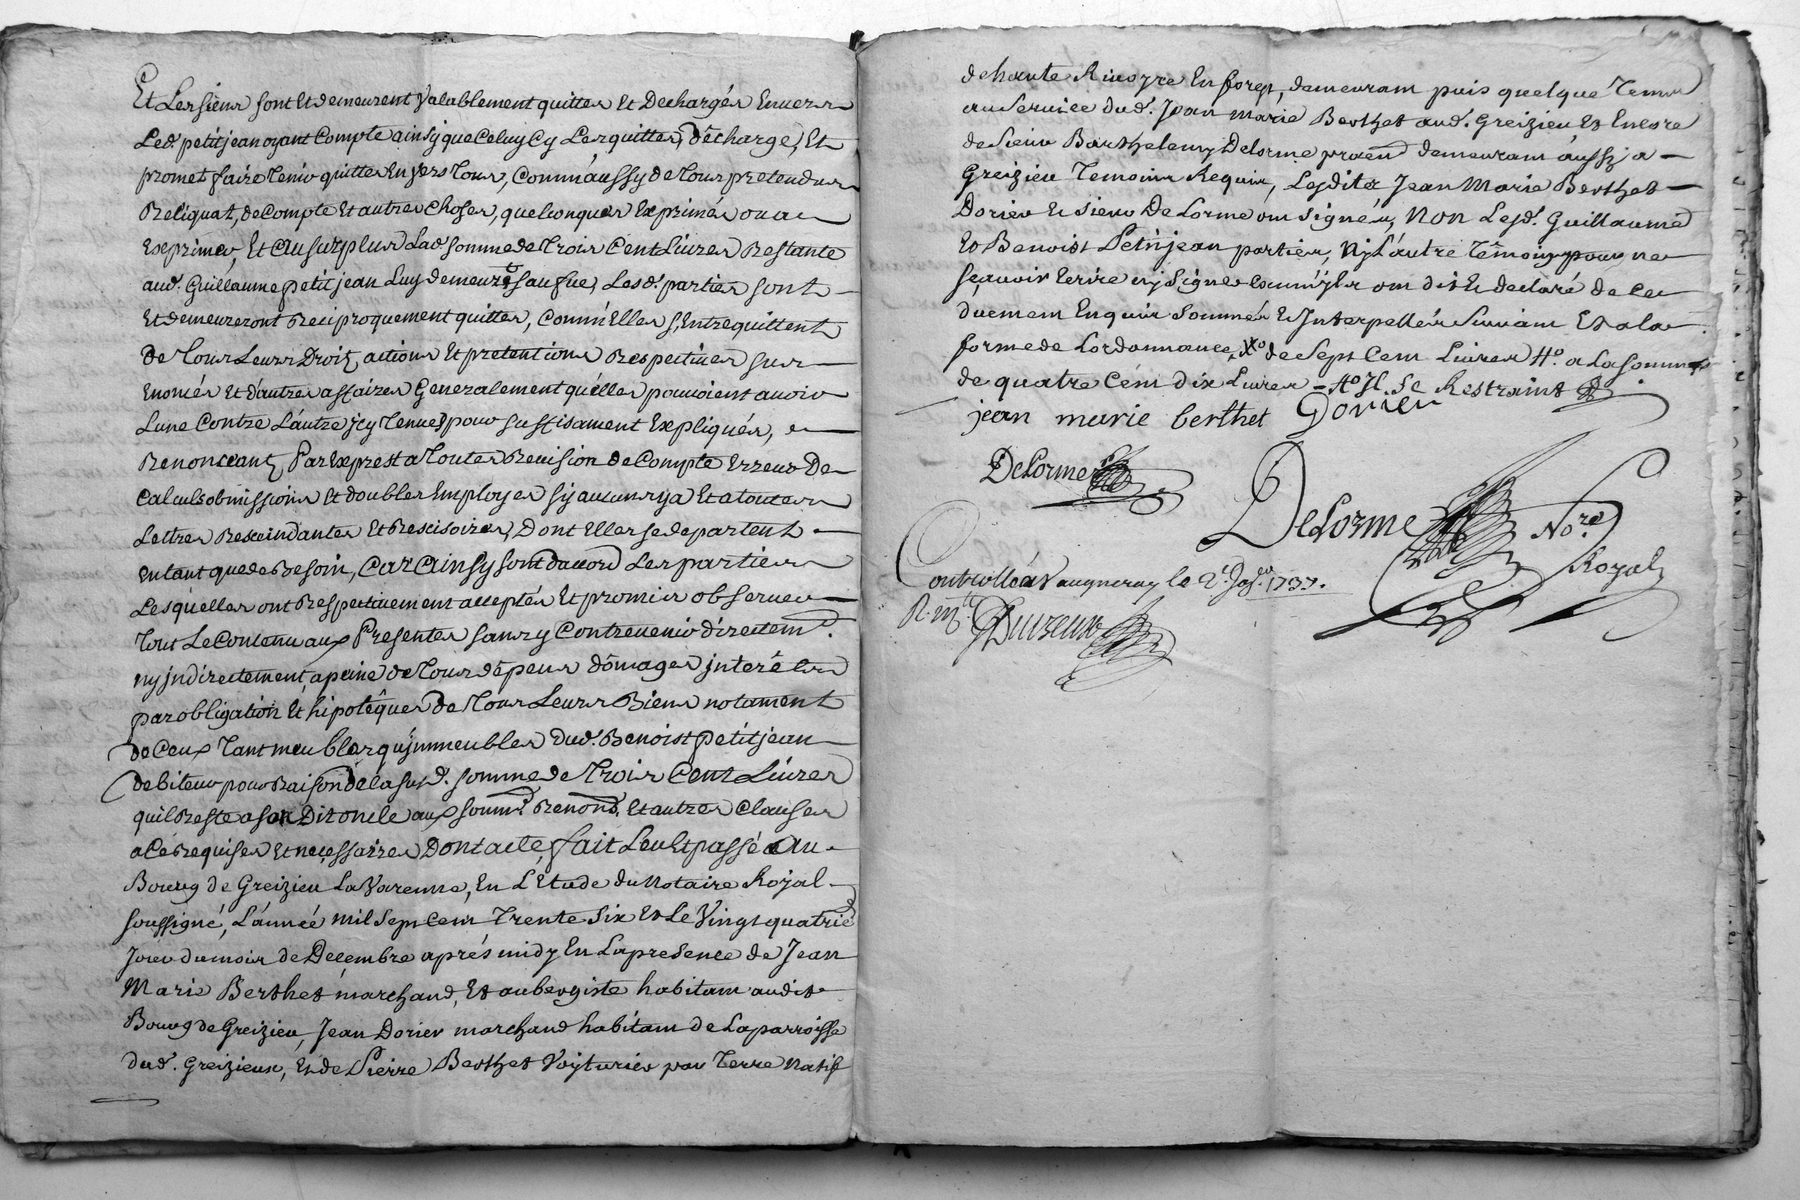 Et Les siens sont Et demeurent valablement quittes Et Dechargés Envers
Led. petitjean oyant Compte ainsy que Celuy Cy Les quitte, décharge, Et
promet faire Tenir quittes Envers Tous, Comm'aussy de Tous pretendus
Reliquat, de Compte Et autres Choses, quelconques Exprimés ou a
Exprimer, Et au surplus Lad. somme de Trois Cent Livres Restante
aud. Guillaume petitjean Luy demeure sauſue, Lesd. parties sont
Et demeureront Reciproquement quittes, Comm'Elles s'Entrequittent
de Tous Leurs Droits, actions Et pretentions Respectives sur
Enoncés Et d'autres affaires Generalement qu'elles pouvoient avoir
Lune Contre L'autre jcy Tenues pour suffisament Expliqués,
Renonceant, Par Exprest a Toutes Revision de Compte Erreur De
Calculs obmissions Et doubles Employes sy aucuns y a Et a toutes
Lettres Rescindantes Et Rescisoires, Dont Elles se departent
En tant que de Besoin, Car Ainsy sont d'accord Les parties
Lesquelles ont Respectivement acceptés Et promis observer
Tout Le Contenu aux Presentes sans y Contrevenir directem.
ny jndirectement, a peine de Tous dépens dômages jnterêts
par obligation Et hipotêques de Tous Leurs Biens notament
de Ceux Tant meubles qu'jmmeubles dud. Benoist petitjean
debiteur pour Raison de la susd. somme de Trois Cent Livres
quil Reste a son Dit oncle aux soum. Renond. Et autres Clauses
a Cé Requises Et neçessaires Dont acte, fait Leu Et passé Au
Bourg de Greizieu La Varenne, En L'Etude du Notaire Royal
soussigné, L'année mil sept cent Trente six Et Le Vingt quatrie
Jour du mois de Décembre aprés midy En La presence de Jean
Marie Berthet marchand, Et aubergiste habitant audit
Bourg de Greizieu, Jean Dorier marchand habitant de La parroisse
dud. Greizieux, Et de Pierre Berthet Voyturier par Terre Natif
de haute Rivoyre En forez, demeurant puis quelque Tems
au Service dud. Jean Marie Berthet aud. Greizieu Et Encore
de Sieur Barthelemy Delorme praen demeurant aussy a
Greizieu Temoins Requis, Lesdits Jean Marie Berthet
Dorier Et Sieur De Lorme ont signés, Non Lesd. Guillaume
Et Benoist Petitjean parties, Ny L'autre Têmoin pour ne
sçavoir Ecrire ny Signer comm'jls ont dit Et declaré de ce
duement Enquis Sommés Et Jnterpellés Suivant Et a la
forme de Lordonnance, de Sept Cent Livres a La somme
de quatre Cent dix Livres Se Restraint
jean marie berthet Dorier
Delorme
DeLorme Nore
Royal
Controllé a Vaugneray le 2e 1737.